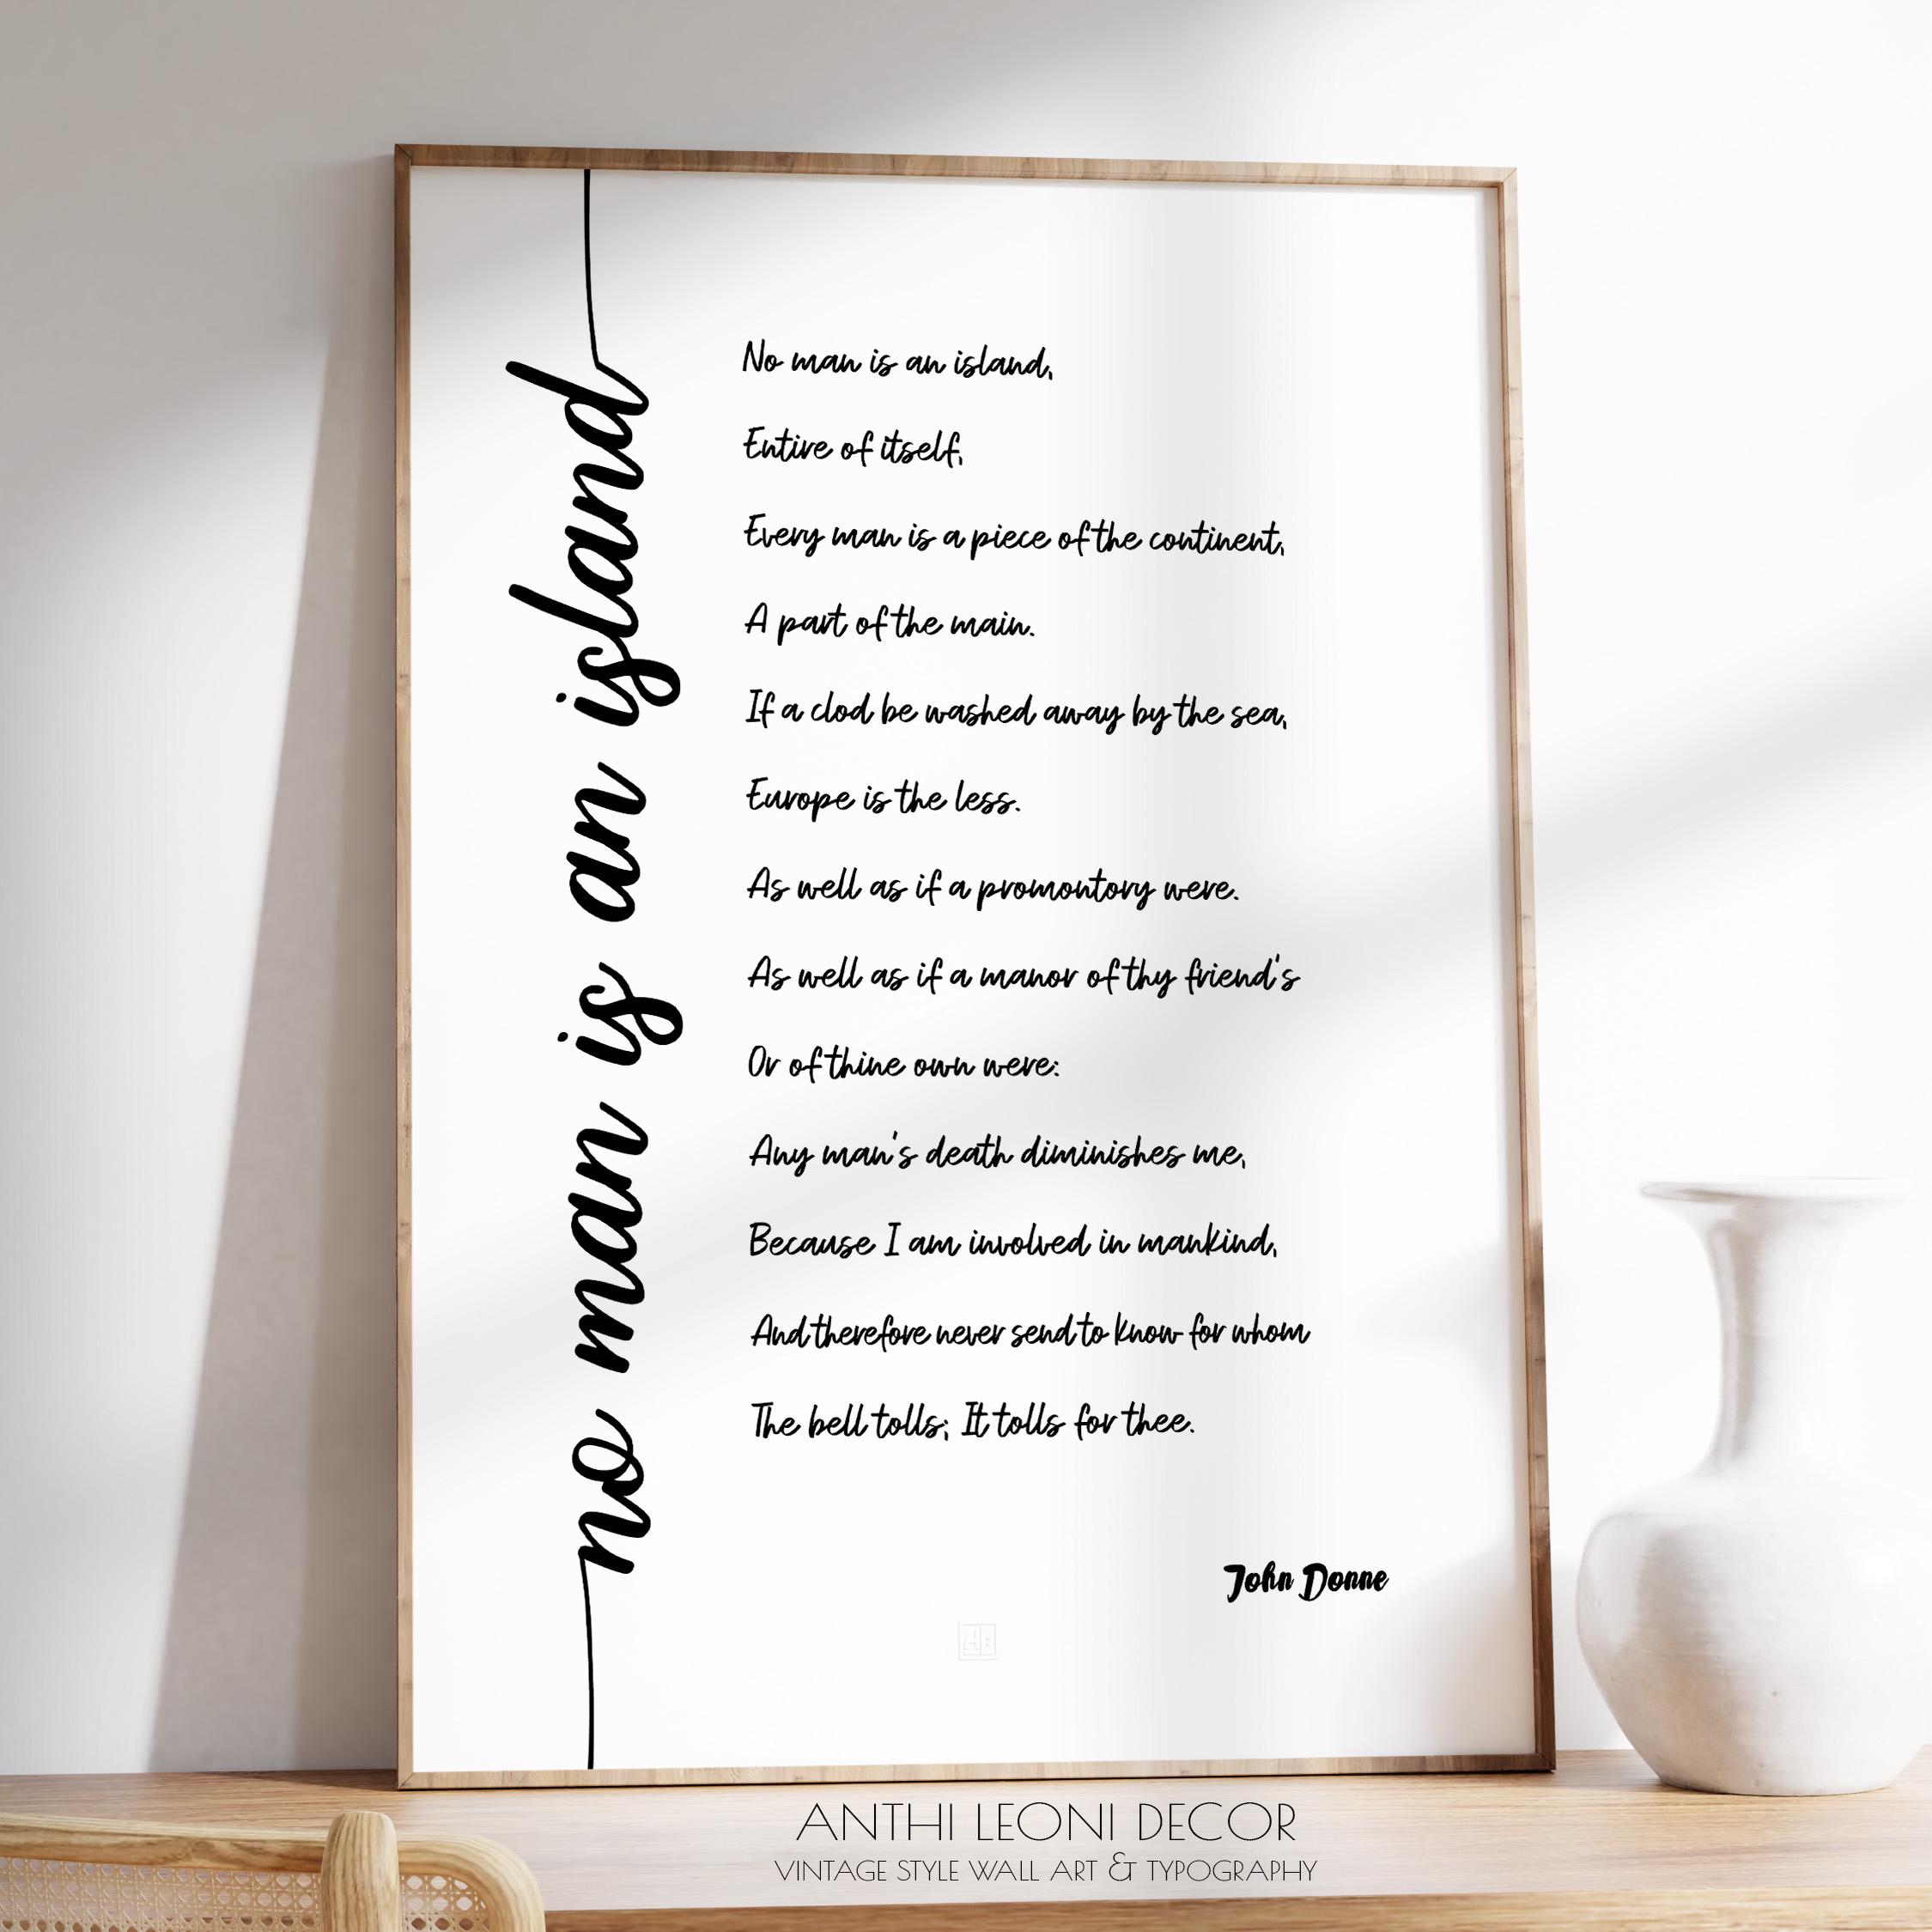 no man is an island
No man is an island,
Entire of itself,
Every man is a piece of the continent,
A part of the main.
If a clod be washed away by the sea,
Europe is the less.
As well as if a promontory were.
As well as if a manor of thy friend's
Or of thine own were:
Any man's death diminishes me,
Because I am involved in mankind,
And therefore never send to know for whom
The bell tolls; It tolls for thee.
John Donne
ANTHI LEONI DECOR
VINTAGE STYLE WALL ART & TYPOGRAPHY